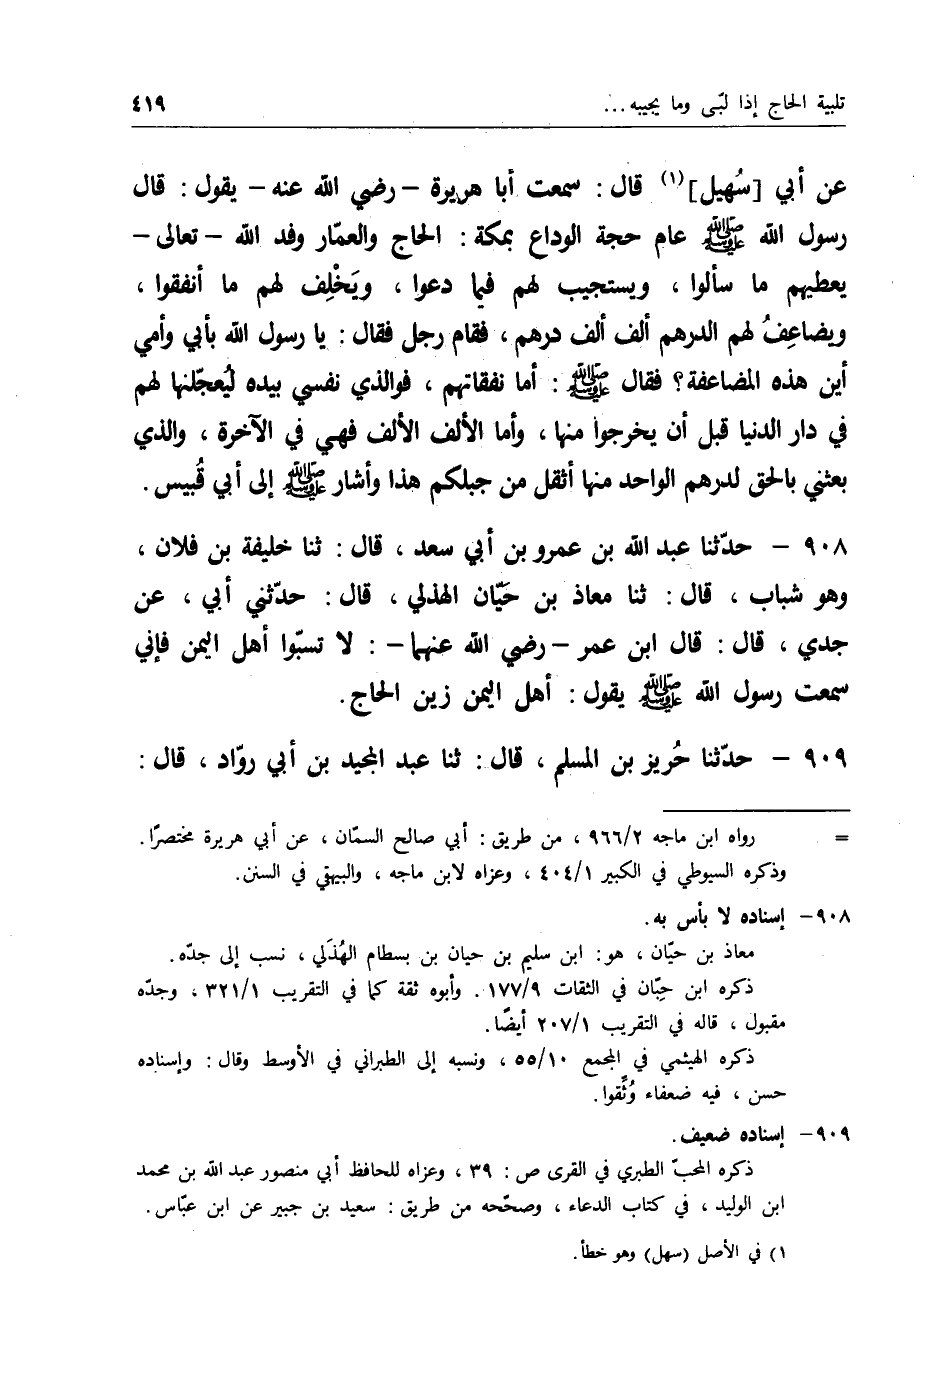 تلبية الحاج إذا لبّى وما يجيبه... ٤١٩
عن أبي [سُهيل](١) قال : سمعت أبا هريرة –رضي الله عنه– يقول : قال
رسول الله ﷺ عام حجة الوداع بمكة : الحاج والعمّار وفد الله –تعالى–
يعطيهم ما سألوا ، ويستجيب لهم فيما دعوا ، ويَخْلِف لهم ما أنفقوا ،
ويضاعِفُ لهم الدرهم ألف ألف درهم ، فقام رجل فقال : يا رسول الله بأبي وأمي
أين هذه المضاعفة؟ فقال ﷺ : أما نفقاتهم ، فوالذي نفسي بيده ليُعجّلنها لهم
في دار الدنيا قبل أن يخرجوا منها ، وأما الألف الألف فهي في الآخرة ، والذي
بعثني بالحق لدرهم الواحد منها أثقل من جبلكم هذا وأشار ﷺ إلى أبي قُبيس.
٩٠٨ – حدّثنا عبد الله بن عمرو بن أبي سعد ، قال : ثنا خليفة بن فلان ،
وهو شباب ، قال : ثنا معاذ بن حَيّان الهذلي ، قال : حدّثني أبي ، عن
جدي ، قال : قال ابن عمر –رضي الله عنهما– : لا تسبّوا أهل اليمن فإني
سمعت رسول الله ﷺ يقول : أهل اليمن زين الحاج.
٩٠٩ – حدّثنا حُريز بن المسلم ، قال : ثنا عبد المجيد بن أبي روّاد ، قال :
= رواه ابن ماجه ٩٦٦/٢ ، من طريق : أبي صالح السمّان ، عن أبي هريرة مختصرًا.
وذكره السيوطي في الكبير ٤٠٤/١ ، وعزاه لابن ماجه ، والبيهقي في السنن.
٩٠٨– إسناده لا بأس به.
معاذ بن حيّان ، هو : ابن سليم بن حيان بن بسطام الهُذَلي ، نسب إلى جدّه.
ذكره ابن حِبّان في الثقات ١٧٧/٩ . وأبوه ثقة كما في التقريب ٣٢١/١ ، وجدّه
مقبول ، قاله في التقريب ٢٠٧/١ أيضًا.
ذكره الهيثمي في المجمع ٥٥/١٠ ، ونسبه إلى الطبراني في الأوسط وقال : وإسناده
حسن ، فيه ضعفاء وُثِّقوا.
٩٠٩– إسناده ضعيف.
ذكره المحبّ الطبري في القرى ص : ٣٩ ، وعزاه للحافظ أبي منصور عبد الله بن محمد
ابن الوليد ، في كتاب الدعاء ، وصحّحه من طريق : سعيد بن جبير عن ابن عبّاس.
١) في الأصل (سهل) وهو خطأ.